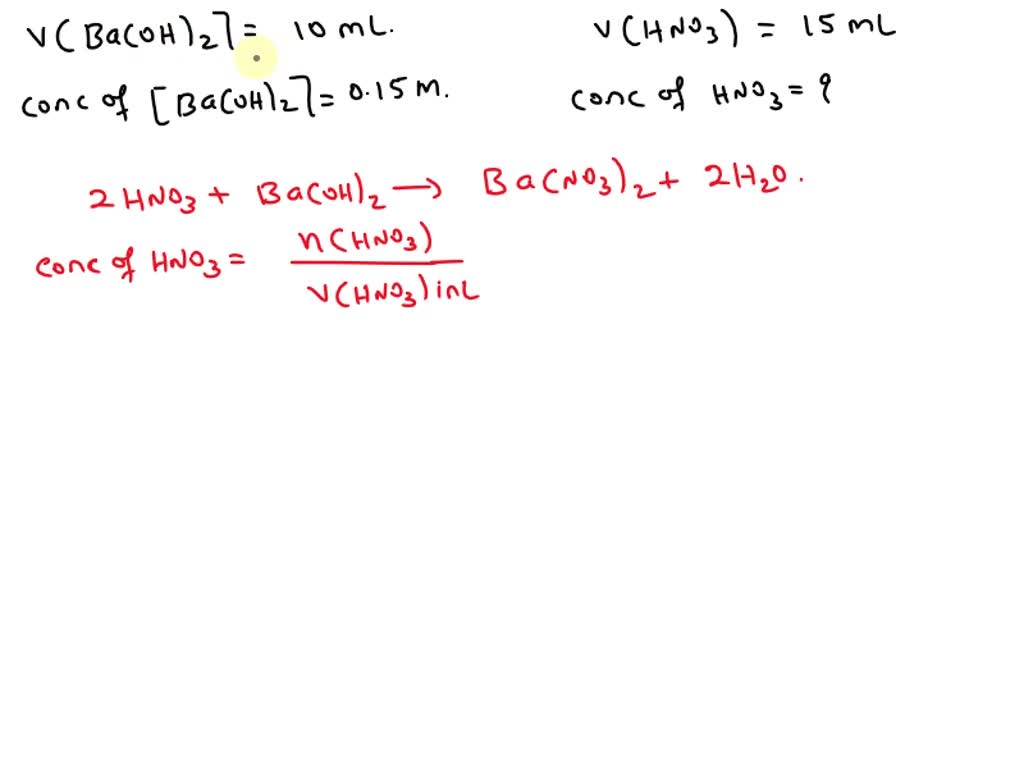 V(Ba(OH)2] = 10 mL. V(HNO3) = 15 mL
conc of [Ba(OH)2] = 0.15 M. conc of HNO3 = ?
2HNO3 + Ba(OH)2 → Ba(NO3)2 + 2H2O.
conc of HNO3 = n(HNO3)
V(HNO3) in L